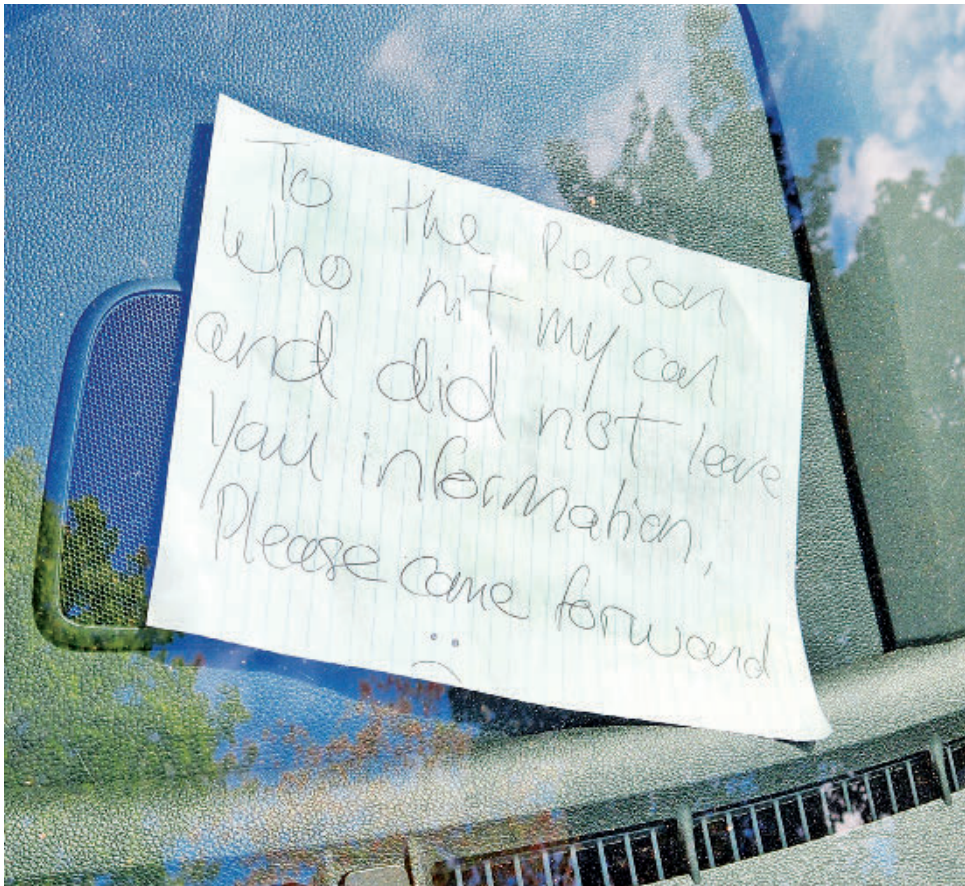 To the Person
who hit my car
and did not leave
your information,
Please come forward